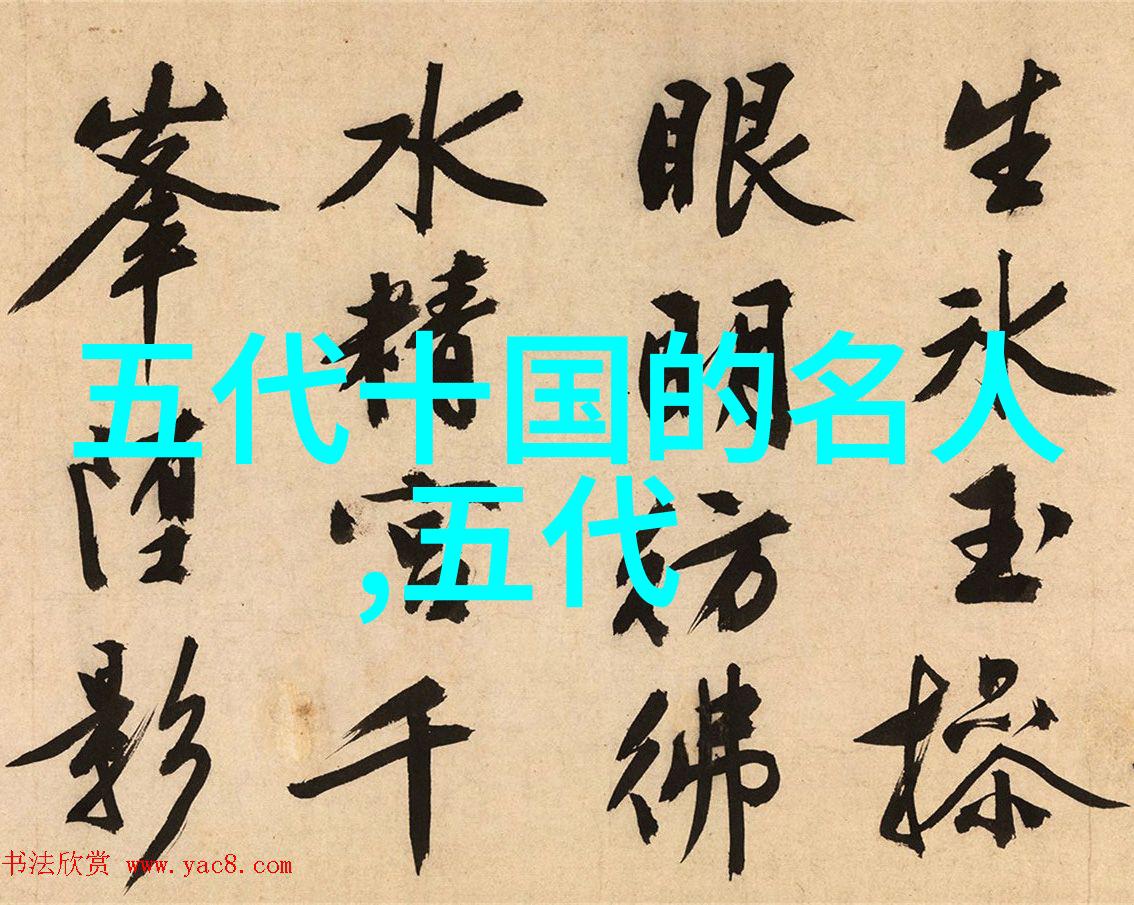 生氷玉操
眼明彷彿
水精宮千
峯墮影
五代十国的名人
,五代
书法欣赏 www.yac8.com